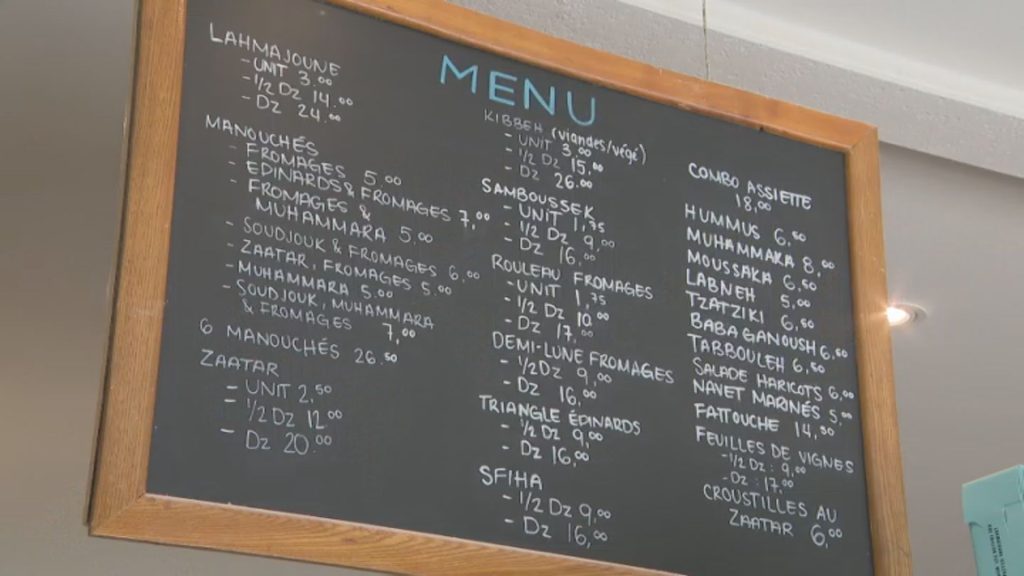 MENU
LAHMAJOUNE
- UNIT 3.00
- 1/2 Dz 14.00
- Dz 24.00
MANOUCHÉS
- FROMAGES 5.00
- EPINARDS & FROMAGES 7,00
- FROMAGES &
MUHAMMARA 5.00
- SOUDJOUK & FROMAGES 6.00
- ZAATAR, FROMAGES 5.00
- MUHAMMARA 5.00
- SOUDJOUK, MUHAMMARA
& FROMAGES 7,00
6 MANOUCHÉS 26.50
ZAATAR
- UNIT 2.50
- 1/2 Dz 12.00
- Dz 20.00
KIBBEH (viandes/végé)
- UNIT 3.00
- 1/2 Dz 15,00
- Dz 26.00
SAMBOUSSEK
- UNIT 1,75
- 1/2 Dz 9,00
- Dz 16,00
ROULEAU FROMAGES
- UNIT 1,75
- 1/2 Dz 10,00
- Dz 17,00
DEMI-LUNE FROMAGES
- 1/2 Dz 9,00
- Dz 16,00
TRIANGLE ÉPINARDS
- 1/2 Dz 9,00
- Dz 16,00
SFIHA
- 1/2 Dz 9,00
- Dz 16,00
COMBO ASSIETTE
18,00
HUMMUS 6,50
MUHAMMARA 8,00
MOUSSAKA 6,50
LABNEH 5,00
TZATZIKI 6,50
BABA GANOUSH 6,50
TABBOULEH 6,50
SALADE HARICOTS 6,00
NAVET MARINÉS 5,00
FATTOUCHE 14,50
FEUILLES DE VIGNES
- 1/2 Dz : 9,00
- Dz : 17,00
CROUSTILLES AU
ZAATAR 6,00